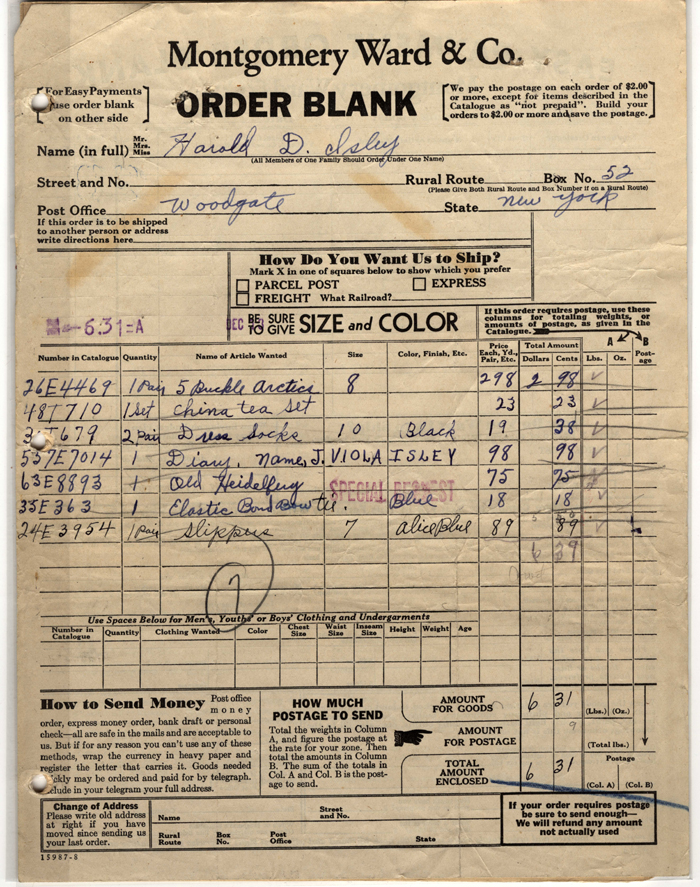 Montgomery Ward & Co.
For Easy Payments
use order blank
on other side
ORDER BLANK
We pay the postage on each order of $2.00
or more, except for items described in the
Catalogue as "not prepaid". Build your
orders to $2.00 or more and save the postage.
Name (in full) Mr. Mrs. Miss Harold D. Isley
(All Members of One Family Should Order Under One Name)
Street and No. Rural Route Box No. 52
(Please Give Both Rural Route and Box Number if on a Rural Route)
Post Office Woodgate State New York
If this order is to be shipped
to another person or address
write directions here
How Do You Want Us to Ship?
Mark X in one of squares below to show which you prefer
PARCEL POST EXPRESS
FREIGHT What Railroad?
6.31=A
DEC BE SURE TO GIVE SIZE and COLOR
If this order requires postage, use these
columns for totaling weights, or
amounts of postage, as given in the
Catalogue. A B
Number in Catalogue Quantity Name of Article Wanted Size Color, Finish, Etc. Price Each, Yd., Pair, Etc. Total Amount Dollars Cents Lbs. Oz. Postage
26E4469 1 Pair 5 Buckle Arctics 8 298 2 98
48T710 1 Set China tea set 23 23
T679 2 Pair Dress Socks 10 Black 19 38
537E7014 1 Diary, name, J. VIOLA ISLEY 98 98
63E8893 1 Old Heidelberg 75 75
SPECIAL REQUEST
35E363 1 Elastic Band Bow tie. Blue 18 18
24E3954 1 Pair Slippers 7 alice Blue 89 89
6 39
7
Use Spaces Below for Men's, Youths' or Boys' Clothing and Undergarments
Number in Catalogue Quantity Clothing Wanted Color Chest Size Waist Size Inseam Size Height Weight Age
How to Send Money Post office money
order, express money order, bank draft or personal
check—all are safe in the mails and are acceptable to
us. But if for any reason you can't use any of these
methods, wrap the currency in heavy paper and
register the letter that carries it. Goods needed
quickly may be ordered and paid for by telegraph.
Include in your telegram your full address.
HOW MUCH
POSTAGE TO SEND
Total the weights in Column
A, and figure the postage at
the rate for your zone. Then
total the amounts in Column
B. The sum of the totals in
Col. A and Col. B is the post-
age to send.
AMOUNT FOR GOODS 6 31 (Lbs.) (Oz.)
AMOUNT FOR POSTAGE 9 (Total lbs.)
TOTAL AMOUNT ENCLOSED 6 31 Postage (Col. A) (Col. B)
Change of Address
Please write old address
at right if you have
moved since sending us
your last order.
Name Street and No.
Rural Route Box No. Post Office State
If your order requires postage
be sure to send enough—
We will refund any amount
not actually used
15987-8